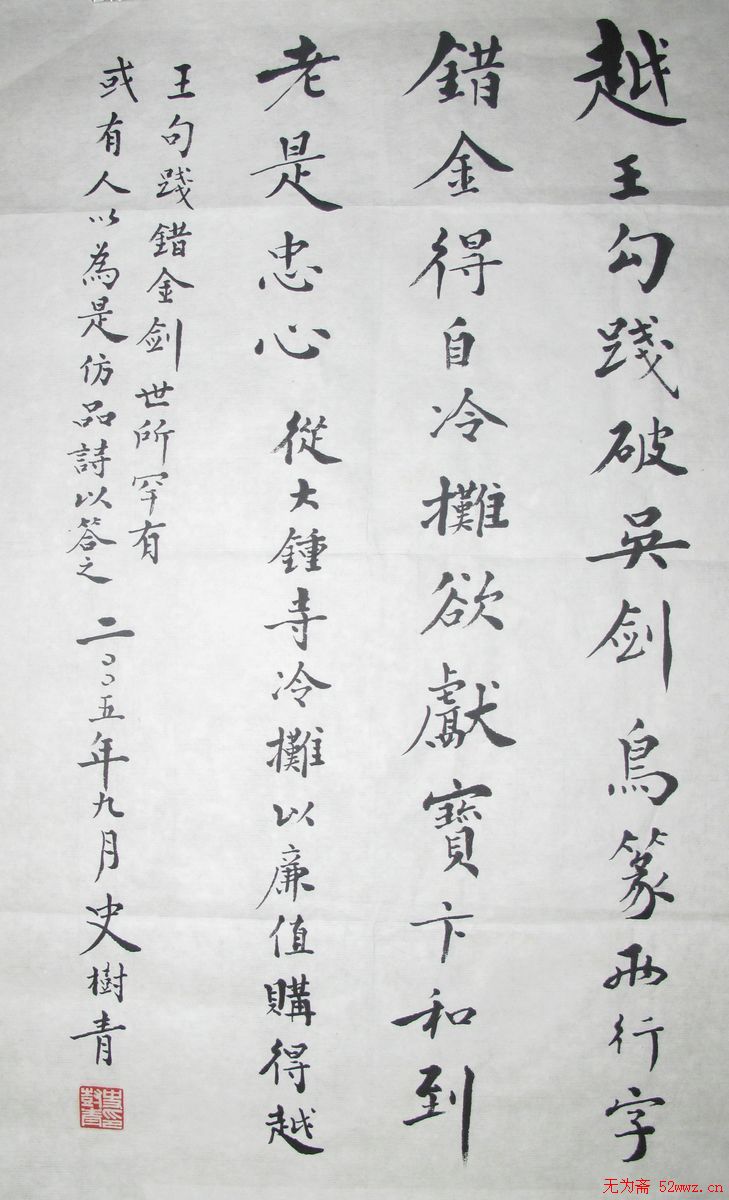 越王勾踐破吳剑鳥篆兩行字
錯金得自冷攤欲獻寶卞和到
老是忠心從大鍾寺冷攤以廉值購得越
王句踐錯金剑世所罕有
或有人以為是仿品詩以答之二〇〇五年九月史樹青
史樹青印
无为斋 52wwz.cn